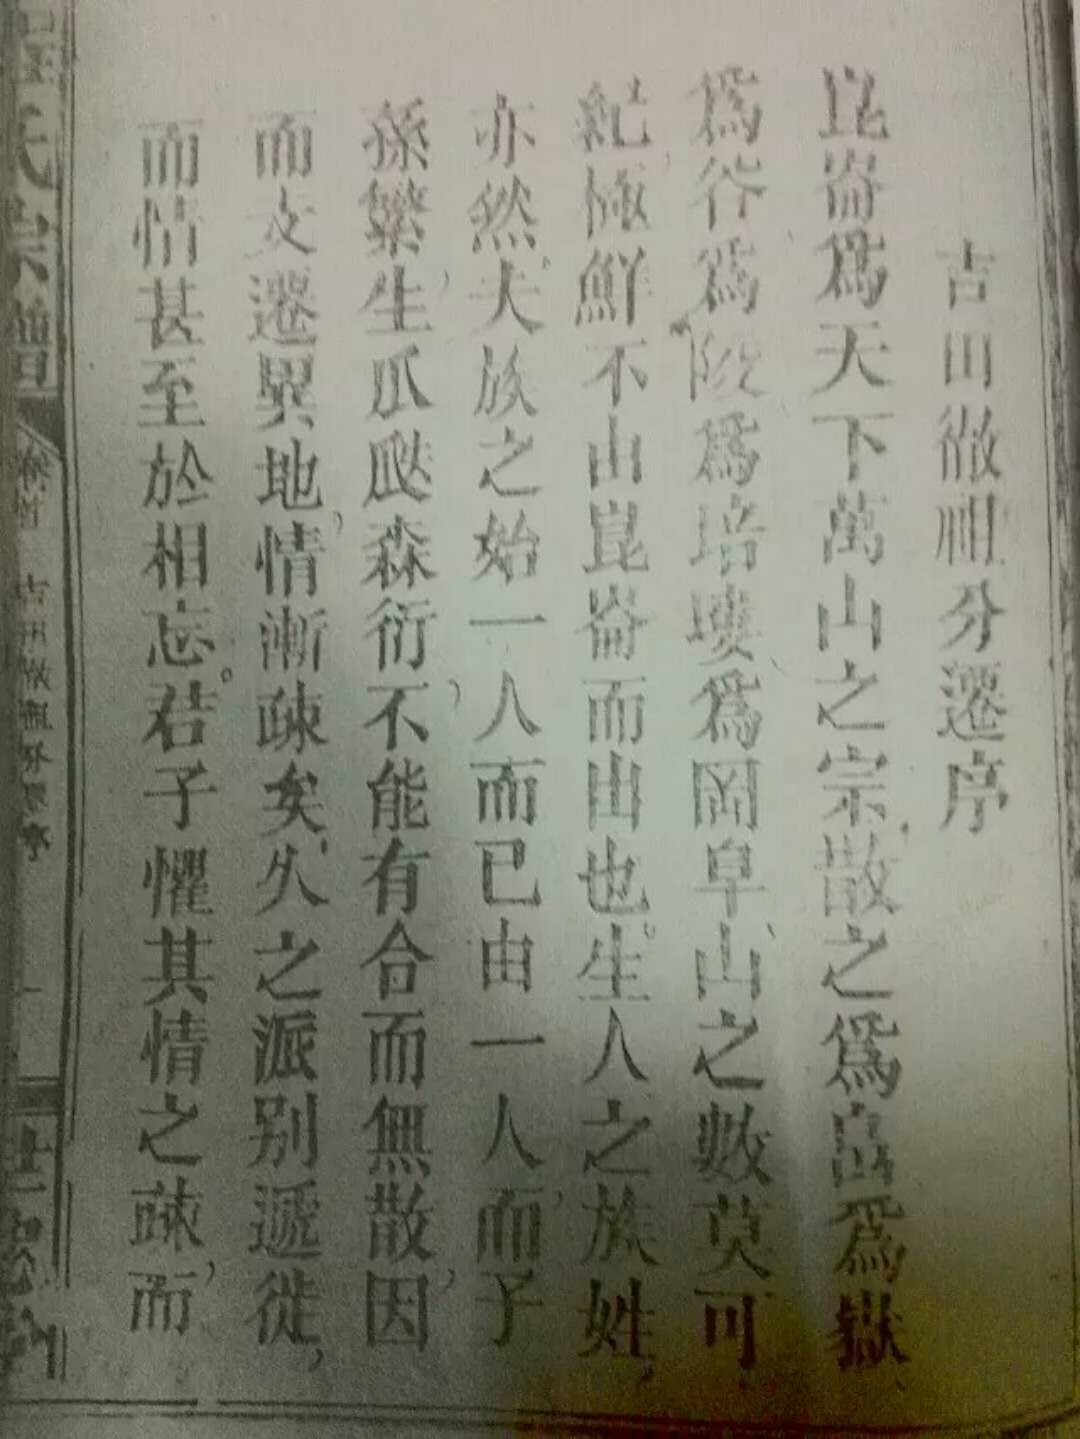 吉田徹祖分遷序
崑崙爲天下萬山之宗散之爲嵓爲嶽
爲谷爲陵爲培塿爲岡阜山之數莫可
紀極鮮不由崑崙而出也生人之族姓
亦然夫族之始一人而已由一人而子
孫繁生瓜瓞森衍不能有合而無散因
而支遷異地情漸疎矣久之派别遞徙
而情甚至於相忘君子懼其情之疎而
氏宗譜